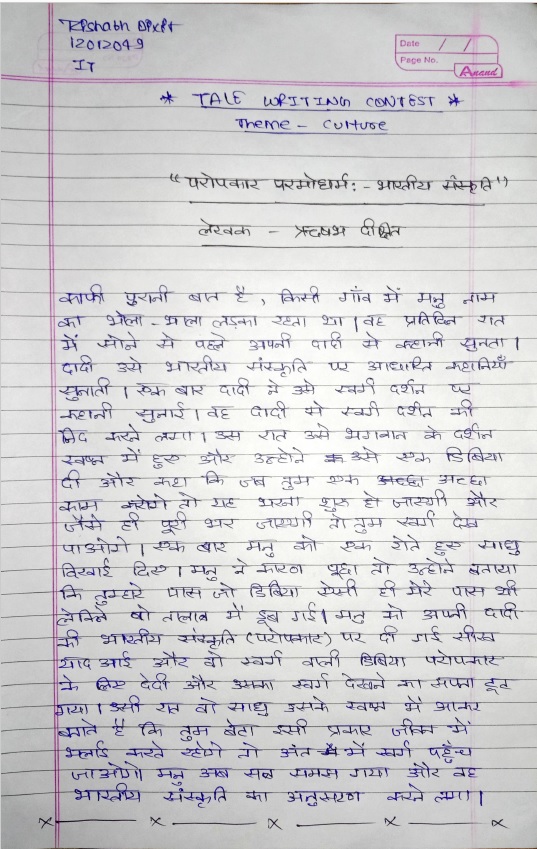 Rishabh Dixit
12012049
IT
Date / /
Page No.
Anand
* TALE WRITING CONTEST *
Theme - Culture
"परोपकार परमोधर्म: - भारतीय संस्कृति"
लेखक - ऋषभ दीक्षित
काफी पुरानी बात है, किसी गाँव में मनु नाम
का भोला-भाला लड़का रहता था। वह प्रतिदिन रात
में सोने से पहले अपनी दादी से कहानी सुनता।
दादी उसे भारतीय संस्कृति पर आधारित कहानियाँ
सुनाती। एक बार दादी ने उसे स्वर्ग दर्शन पर
कहानी सुनाई। वह दादी से स्वर्ग दर्शन की
जिद करने लगा। उस रात उसे भगवान के दर्शन
स्वप्न में हुए और उन्होंने उसे एक डिबिया
दी और कहा कि जब तुम एक अच्छा
काम करोगे तो यह भरना शुरू हो जाएगी और
जैसे ही पूरी भर जाएगी तो तुम स्वर्ग देख
पाओगे। एक बार मनु को एक रोते हुए साधु
दिखाई दिए। मनु ने कारण पूछा तो उन्होंने बताया
कि तुम्हारे पास जो डिबिया ऐसी ही मेरे पास थी
लेकिन वो तालाब में डूब गई। मनु को अपनी दादी
की भारतीय संस्कृति (परोपकार) पर दी गई सीख
याद आई और वो स्वर्ग वाली डिबिया परोपकार
के लिए देदी और उसका स्वर्ग देखने का सपना टूट
गया। उसी रात वो साधु उसके स्वप्न में आकर
कहते है कि तुम बेटा इसी प्रकार जीवन में
भलाई करते रहोगे तो अंत में स्वर्ग पहुँच
जाओगे। मनु अब सब समझ गया और वह
भारतीय संस्कृति का अनुसरण करने लगा।
x x x x x